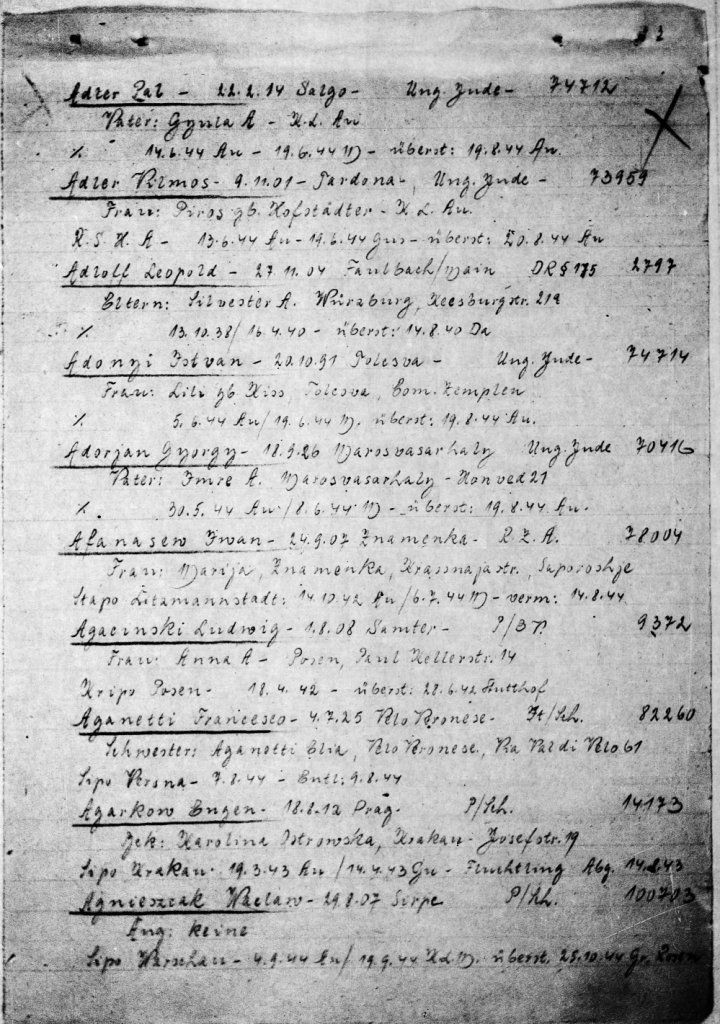 2
Adler Pal - 22.2.14 Salgo- Ung. Jude- 74712
Vater: Gyula A - K.L. Au
% 14.6.44 Au - 19.6.44 M - überst: 19.8.44 Au.
Adler Vilmos- 9.11.01- Pardona-, Ung. Jude- 73959
Frau: Piros gb. Hofstädter - K.L. Au.
R.S.H.A- 13.6.44 Au- 19.6.44 Gus- überst: 20.8.44 Au
Adloff Leopold - 27.11.04 Faulbach/Main DR § 175 2797
Eltern: Silvester A. Würzburg, Keesburgstr. 21a
% 13.10.38/ 16.4.40 - überst: 14.8.40 Da
Adonyi Istvan - 20.10.91 Tolesva - Ung. Jude- 74714
Frau: Lili gb. Kiss, Tolesva, Com. Zemplen
% 5.6.44 Au/ 19.6.44 M. überst: 19.8.44 Au.
Adorjan Gyorgy- 18.9.26 Marosvasarhaly Ung. Jude 70416
Vater: Imre A. Marosvasarhaly - Honved 21
% 30.5.44 Au-/8.6.44 M - überst: 19.8.44 Au.
Afanasew Iwan- 24.9.07 Znamenka- R.Z.A. 78004
Frau: Marija, Znamenka, Krasnajastr., Saporoshje
Stapo Litzmannstadt: 14.10.42 Au/6.7.44 M - verm: 14.8.44
Agacinski Ludwig- 1.8.08 Samter- P/BV. 9372
Frau: Anna A- Posen, Paul Kellerstr. 14
Kripo Posen- 18.4.42 - überst: 28.6.42 Stutthof
Aganetti Francesco- 4.7.25 Velo Veronese- It/Sch. 82260
Schwester: Aganetti Elia, Velo Veronese, Via Val di Velo 61
Sipo Verona- 7.8.44 - Entl: 9.8.44
Agarkow Eugen- 18.8.12 Prag- P/Sch. 14173
Bek: Karolina Ostrowska, Krakau- Josefstr. 19
Sipo Krakau- 19.3.43 Au /14.4.43 Gu - Fluchtling Abg. 14.8.43
Agnieszcak Waclaw- 29.8.07 Serpc P/Sch. 100703
Ang: keine
Sipo Warschau- 4.9.44 Au/ 19.9.44 Kd. M. überst. 25.10.44 Gr. Rosen